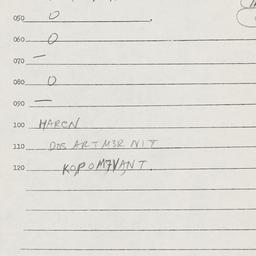 050 O .
060 O
070 —
080 O
090 —
100 HAREN
110 DOS ARTMER NIT
120 KOPOMEVANT.